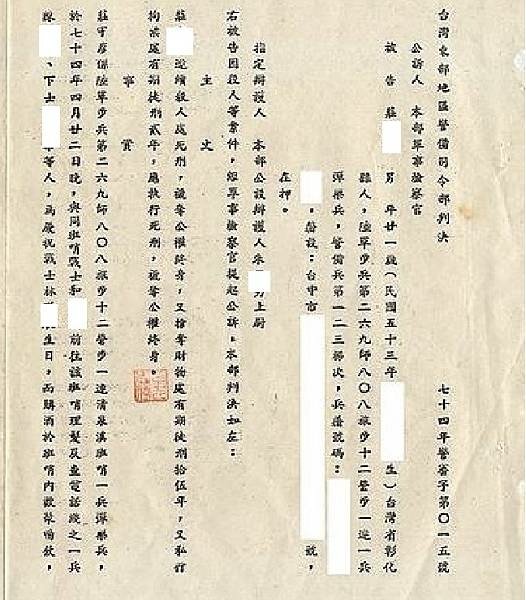 台灣東部地區警備司令部判決　七十四年警審字第〇一五號
公訴人　本部軍事檢察官
被告　莊　男　年廿一歲（民國五十三年　生）台灣省彰化
縣人，陸軍步兵第二六九師八〇八旅步十二營步一連一兵
彈藥兵，警備兵第一二三梯次，兵籍號碼：
，籍設：台中市　號，
在押。
指定辯護人　本部公設辯護人朱　上尉
右被告因殺人等案件，經軍事檢察官提起公訴，本部判決如左：
主文
莊　連續殺人處死刑，褫奪公權終身，又搶奪財物處有期徒刑拾伍年，又私行
拘禁處有期徒刑貳年，應執行死刑，褫奪公權終身。
事實
莊　係陸軍步兵第二六九師八〇八旅步十二營步一連清泉溪班哨一兵彈藥兵，
於七十四年四月廿二日晚，與同班哨戰士和　前往該班哨理髮及查電話綫之一兵
、下士　等人，為慶祝戰士林　生日，而購酒於班哨內歡聚暢飲，